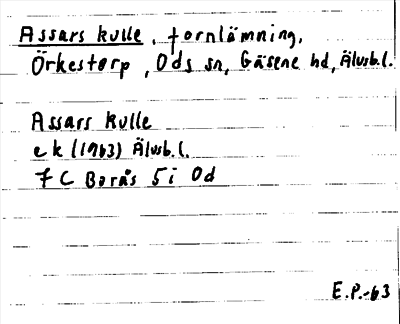 Assars kulle, fornlämning,
Örkestorp, Ods sn, Gäsene hd, Älvsb.l.
Assars kulle
ek (1963) Älvsb.l.
7 C Borås 5 i Od
E.P.-63